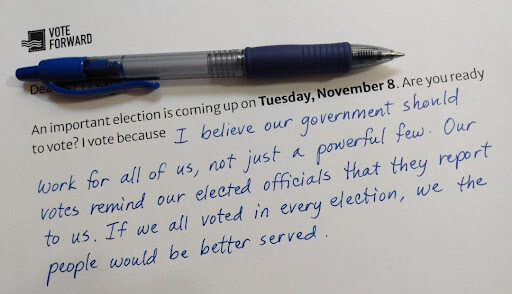 VOTE
FORWARD
An important election is coming up on Tuesday, November 8. Are you ready
to vote? I vote because I believe our government should
work for all of us, not just a powerful few. Our
votes remind our elected officials that they report
to us. If we all voted in every election, we the
people would be better served.